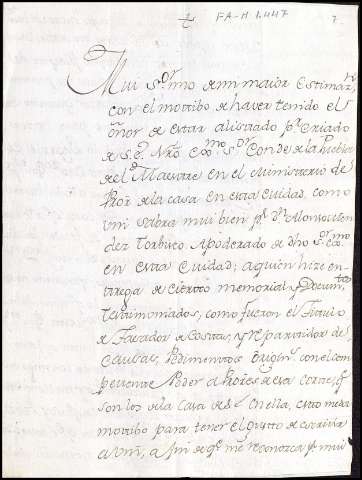 + FA-H 1.447 7.
Mui Sor. mio de mi maior Estimaz.on
con el motibo de haver tenido el
onor de estar alistado pr. Criado
de S.E. Nro. Exmo. Sr. Conde de la Puebla
de el Maestre en el Ministerio de
Pror. de la casa en esta Ciudad, como
vm sabra mui bien pr. Dn. Alonso
dez Toribio, Apoderado de dho Sr. mo.
en esta Ciudad; a quien hize en
trega de cierto memorial y Docum.tos
testimoniados, como fueron el Titulo
de Tasador de Costas, y repartidor de
Causas, Pedimentos origins. con el com
petente Poder a Prores. de esa corte, q.
son los de la Casa de S.E. en ella, esto me da
motibo para tener el gusto de escrivir
a vm, a fin de qe. me reconozca pr. mui